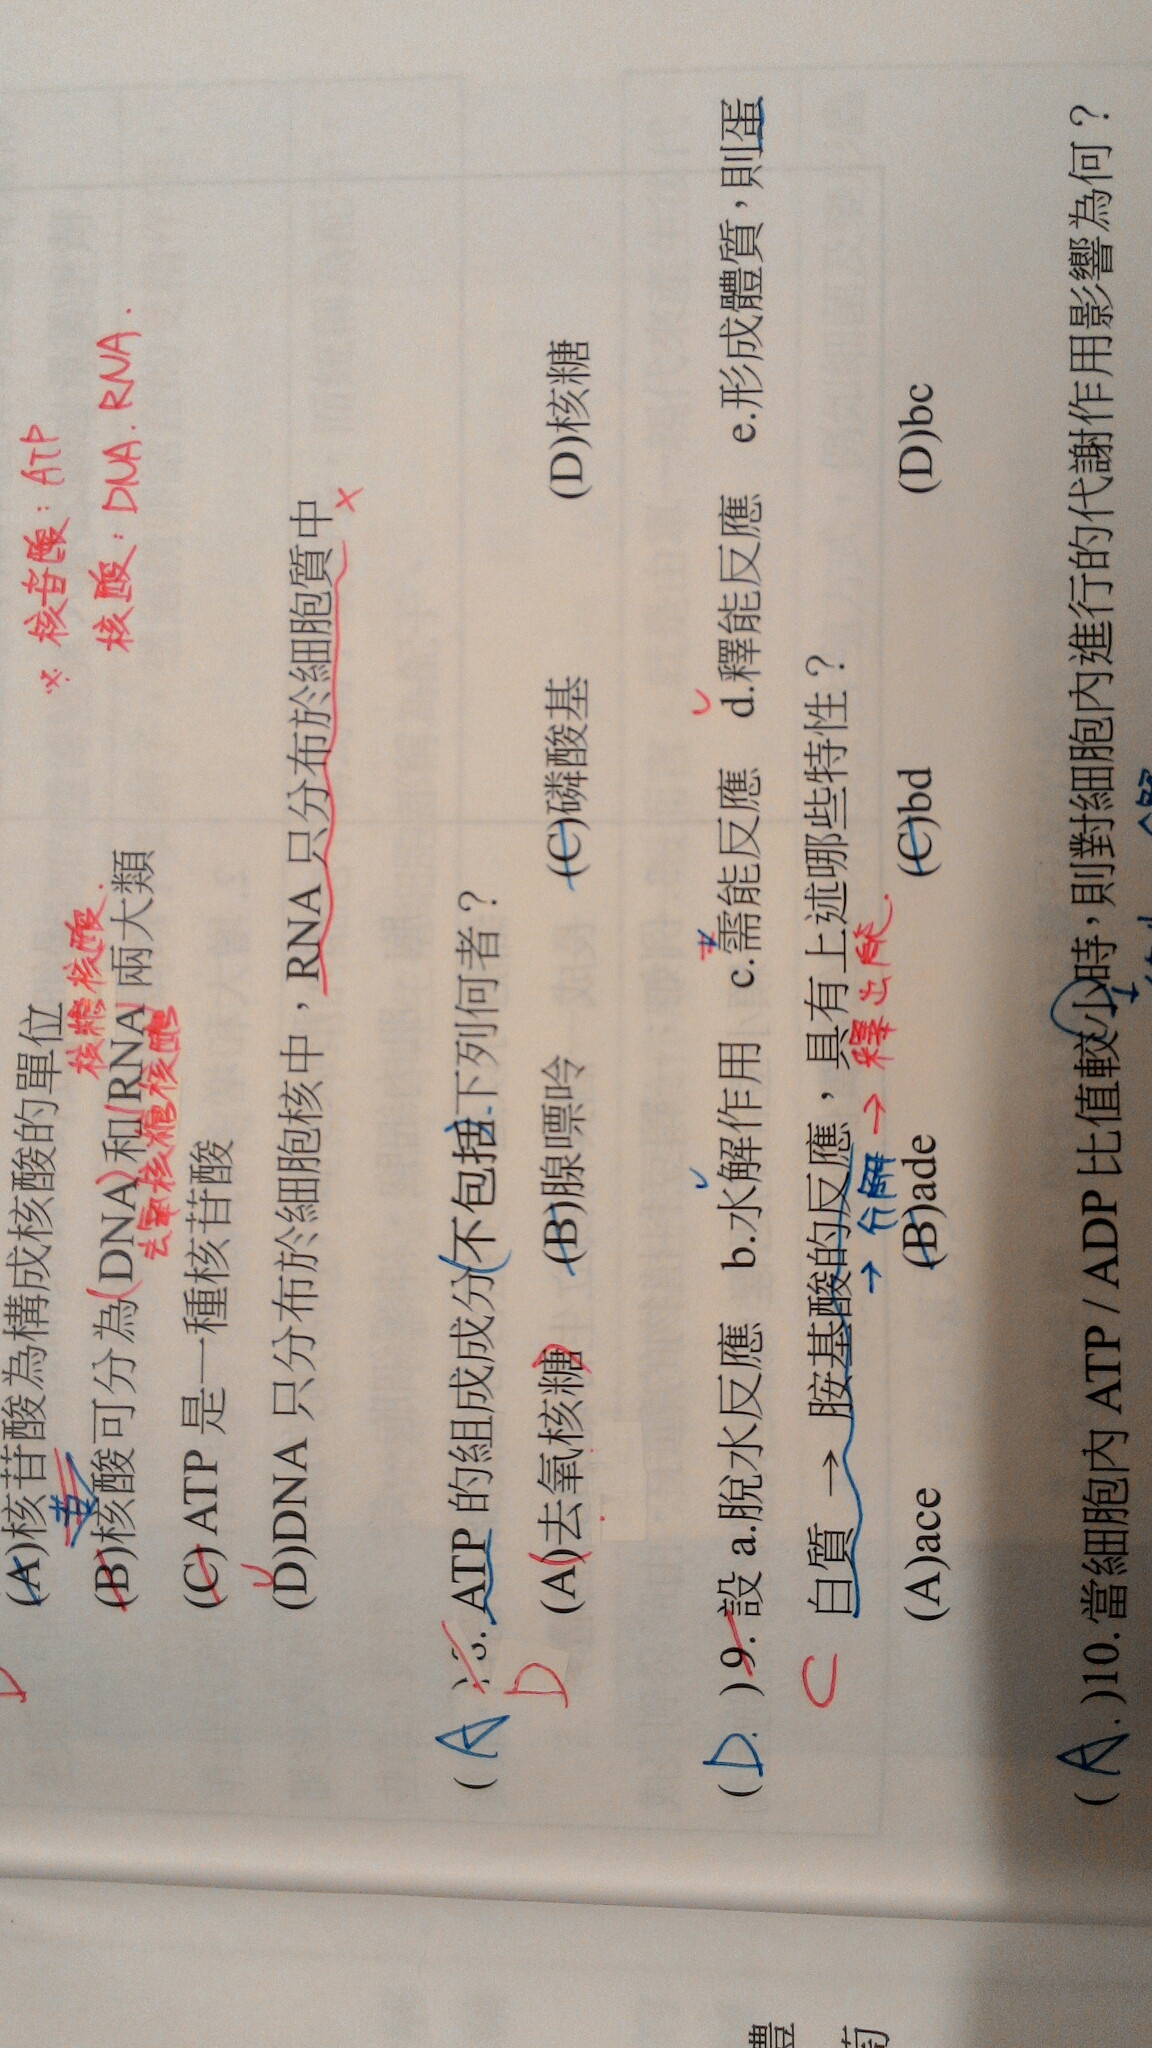 ※ 核苷酸：ATP
核酸：DNA．RNA．
(A)核苷酸為構成核酸的單位
核糖核酸．
(B)核酸可分為(DNA)和RNA 兩大類
去氧核糖核酸
(C) ATP 是一種核苷酸
(D)DNA 只分布於細胞核中，RNA 只分布於細胞質中
×
( A )8. ATP 的組成成分(不包括)下列何者？
D
(A)去氧核糖 (B)腺嘌呤 (C)磷酸基 (D)核糖
( D. )9. 設 a.脫水反應 b.水解作用 c.需能反應 d.釋能反應 e.形成體質，則蛋
C 白質 → 胺基酸的反應，具有上述哪些特性？
→ 分解 → 釋出能．
(A)ace (B)ade (C)bd (D)bc
( A. )10.當細胞內 ATP / ADP 比值較小時，則對細胞內進行的代謝作用影響為何？
體
萄